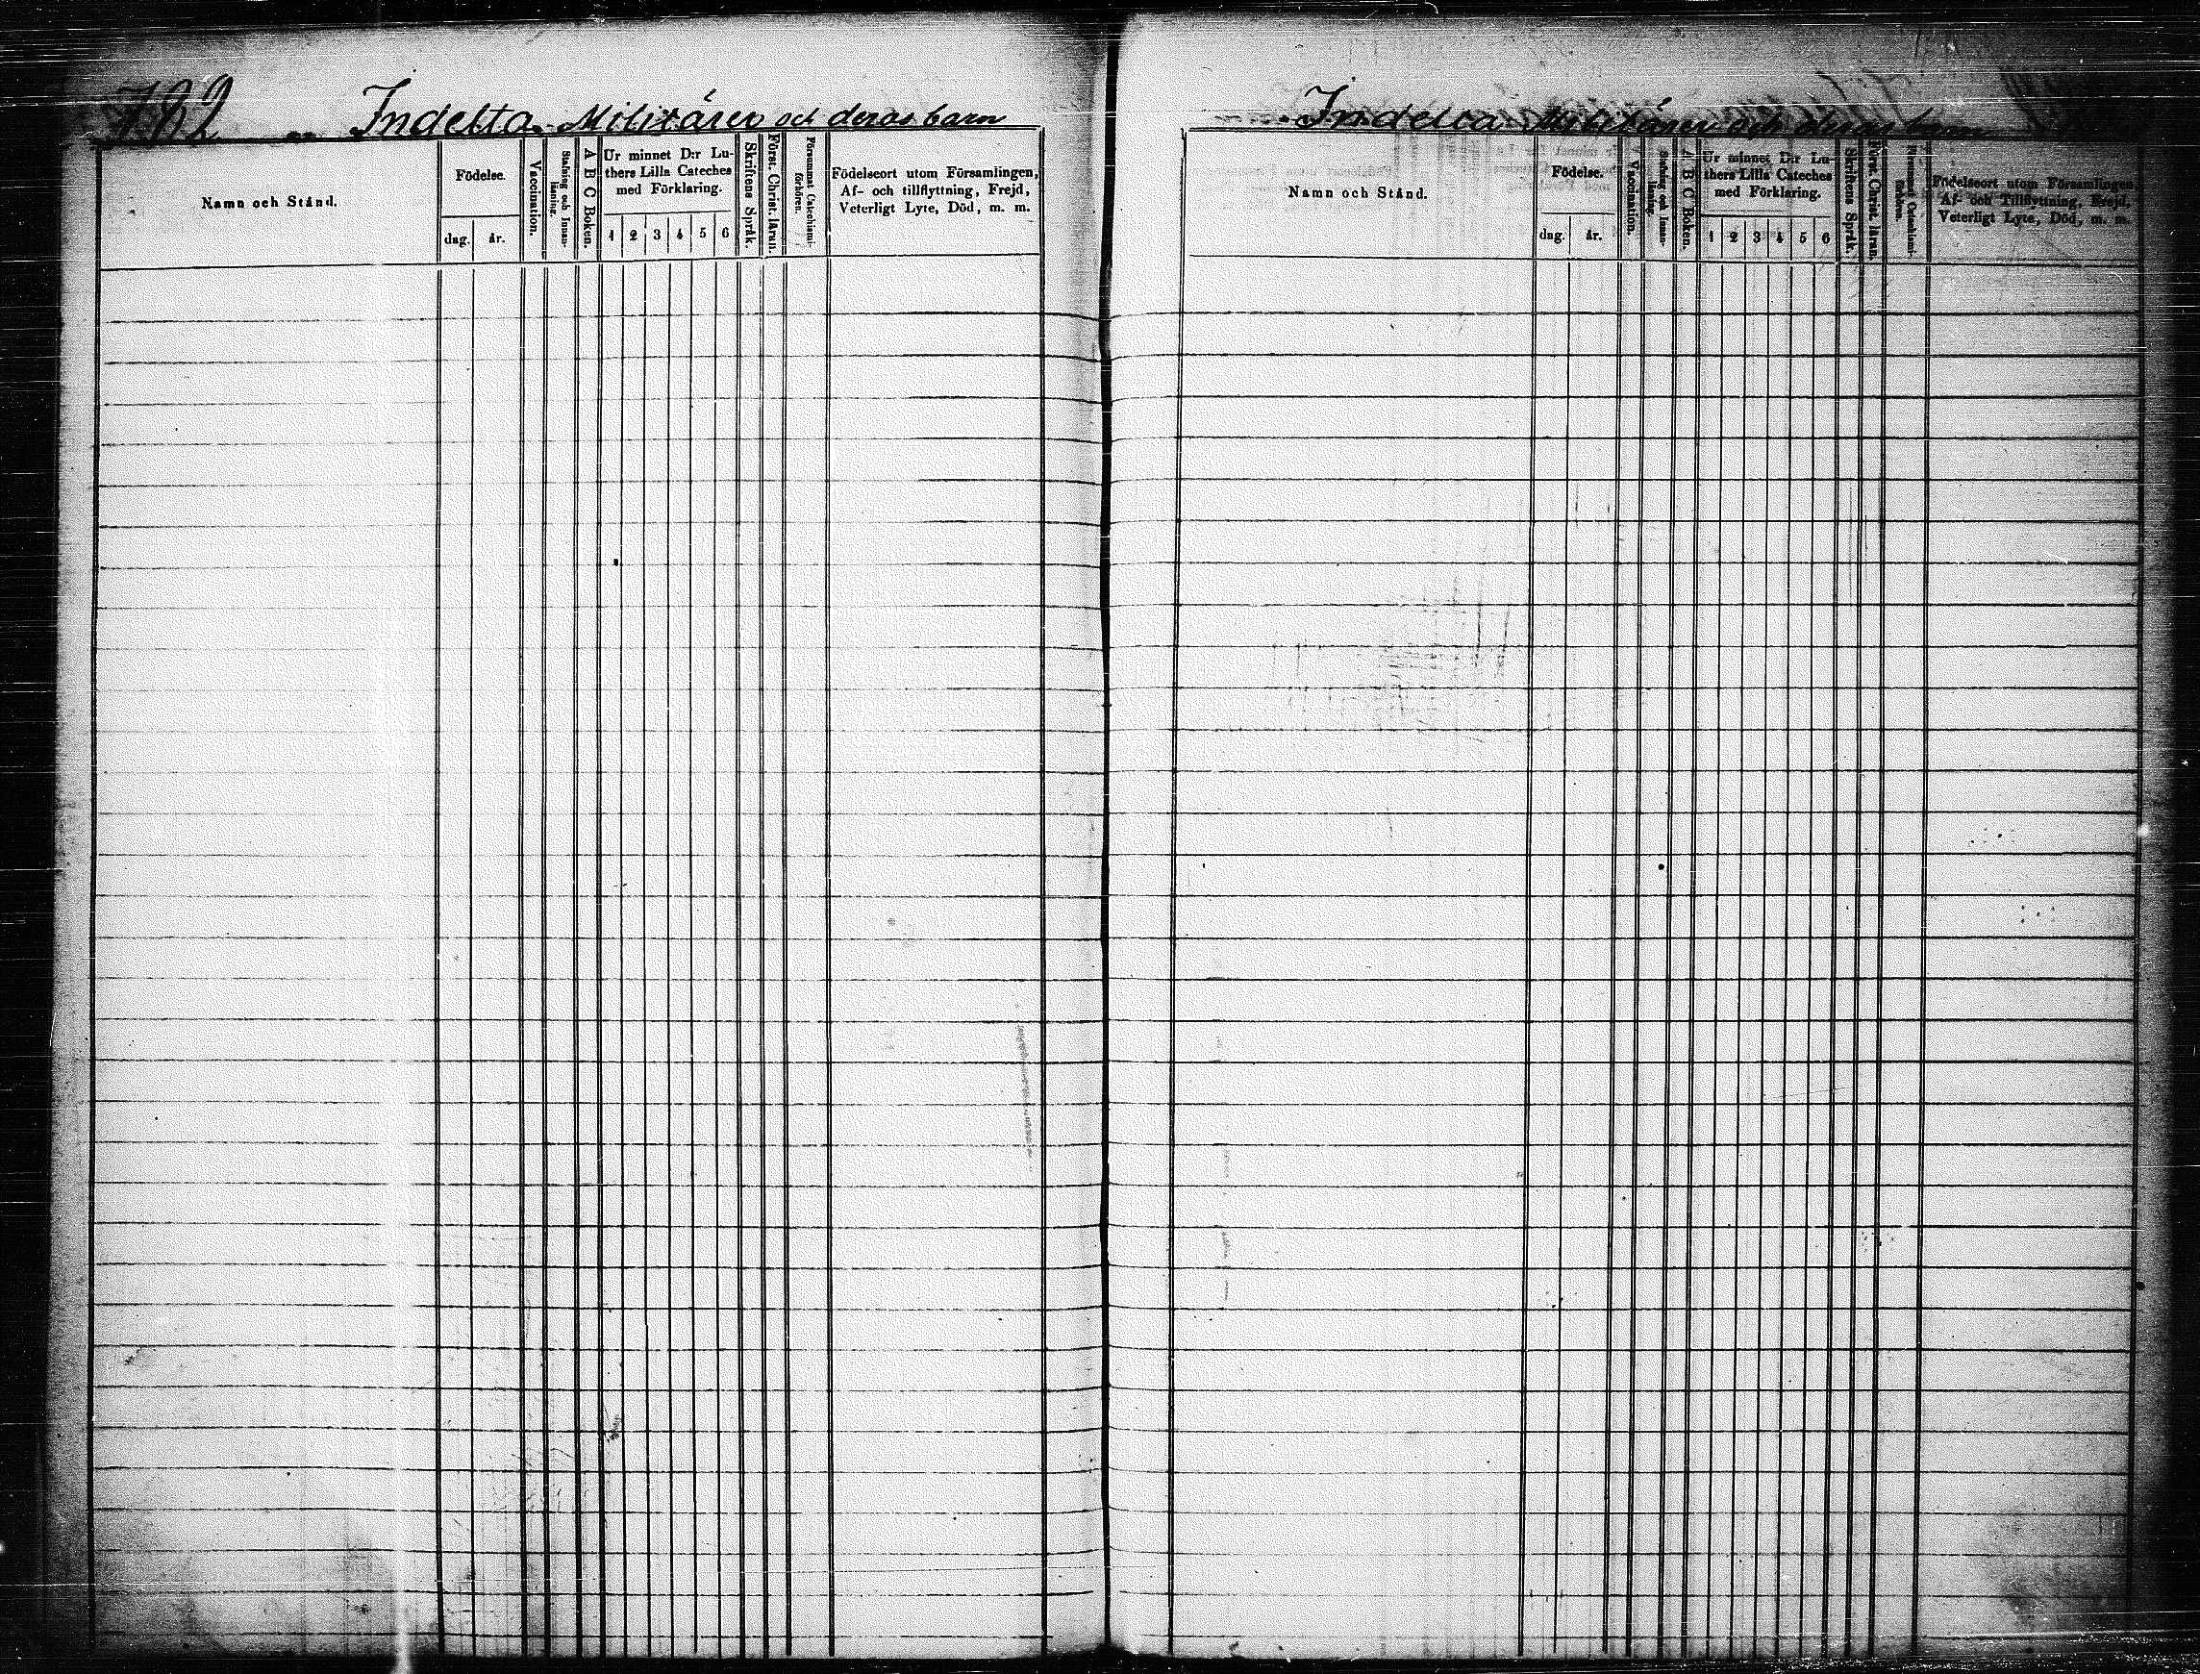 182 Indelta Militärer och deras barn
Namn och Stånd.
Födelse.
dag. år.
Vaccination.
Stafning och Innan-
läsning.
A B C Boken.
Ur minnet D:r Lu-
thers Lilla Cateches
med Förklaring.
1 2 3 4 5 6
Skriftens Språk.
Först. Christ. läran.
Försummat Catechismi-
förhören.
Födelseort utom Församlingen,
Af- och tillflyttning, Frejd,
Veterligt Lyte, Död, m. m.
Indelta Militärer och deras barn
Namn och Stånd.
Födelse.
dag. år.
Vaccination.
Stafning och Innan-
läsning.
A B C Boken.
Ur minnet D:r Lu-
thers Lilla Cateches
med Förklaring.
1 2 3 4 5 6
Skriftens Språk.
Först. Christ. läran.
Försummat Catechismi-
förhören.
Födelseort utom Församlingen,
Af- och Tillflyttning, Frejd,
Veterligt Lyte, Död, m. m.